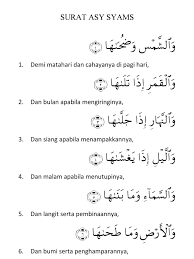 SURAT ASY SYAMS
وَٱلشَّمْسِ وَضُحَىٰهَا ۝١
1. Demi matahari dan cahayanya di pagi hari,
وَٱلْقَمَرِ إِذَا تَلَىٰهَا ۝٢
2. Dan bulan apabila mengiringinya,
وَٱلنَّهَارِ إِذَا جَلَّىٰهَا ۝٣
3. Dan siang apabila menampakkannya,
وَٱلَّيْلِ إِذَا يَغْشَىٰهَا ۝٤
4. Dan malam apabila menutupinya,
وَٱلسَّمَآءِ وَمَا بَنَىٰهَا ۝٥
5. Dan langit serta pembinaannya,
وَٱلْأَرْضِ وَمَا طَحَىٰهَا ۝٦
6. Dan bumi serta penghamparannya,